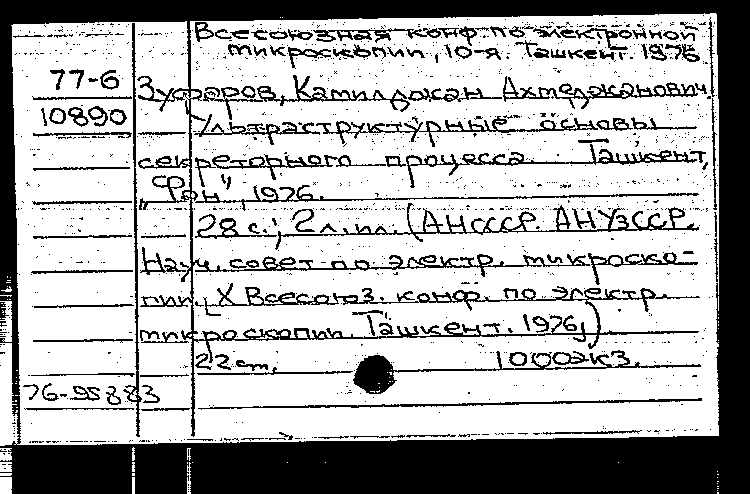 Всесоюзная конф. по электронной
микроскопии, 10-я. Ташкент. 1976
77-6
Зуфаров, Камилджан Ахмеджанович.
10890
Ультраструктурные основы
секреторного процесса. Ташкент,
"Фан", 1976.
28 с.; 2 л. ил. (АН СССР. АН УзССР.
Науч. совет по электр. микроско-
пии. [X Всесоюз. конф. по электр.
микроскопии. Ташкент. 1976])
22 см. 1000 экз.
76-95883